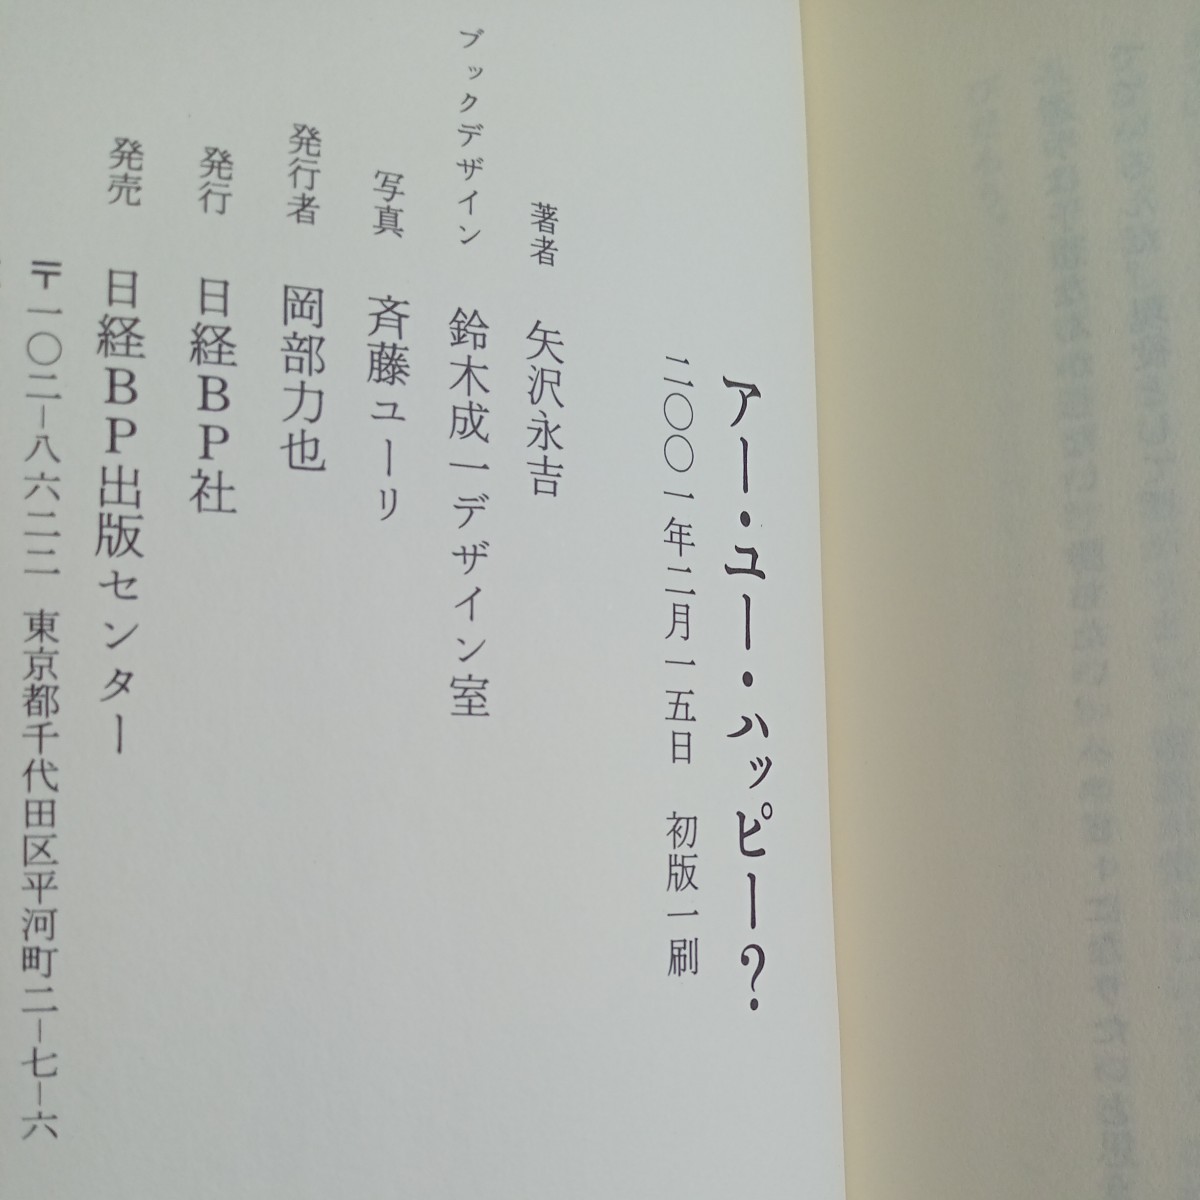 アー・ユー・ハッピー?
二〇〇一年二月一五日　初版一刷
著者　矢沢永吉
ブックデザイン　鈴木成一デザイン室
写真　斉藤ユーリ
発行者　岡部力也
発行　日経BP社
発売　日経BP出版センター
〒一〇二－八六二二　東京都千代田区平河町二－七－六